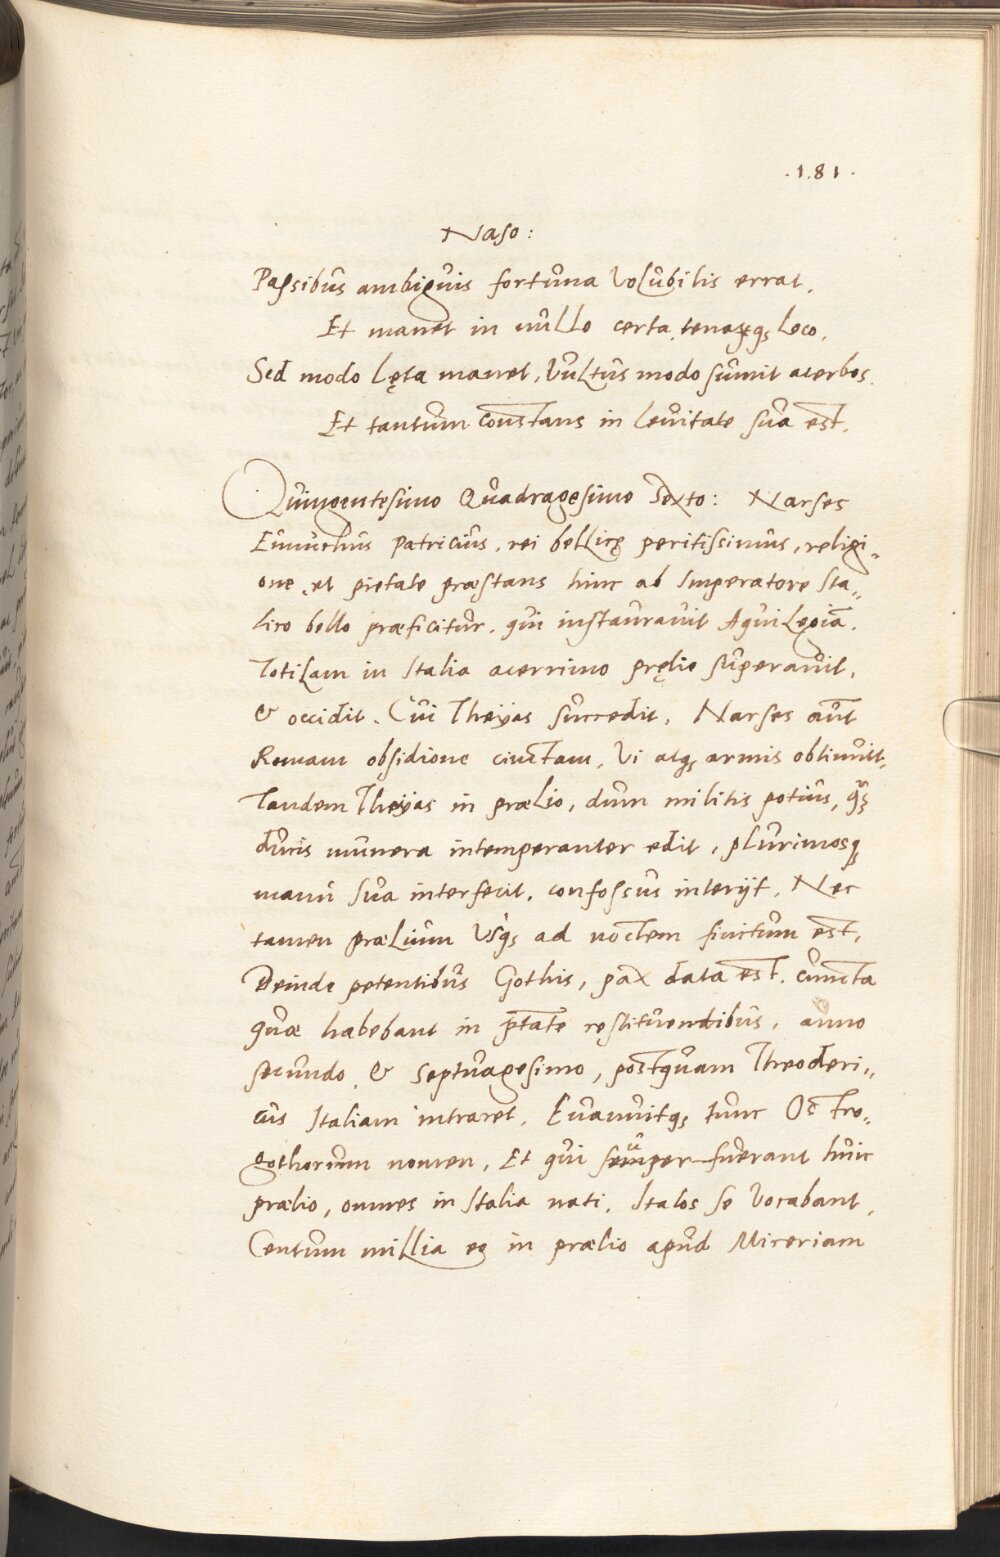 .181.
Naso:
Passibus ambiguis fortuna Volubilis errat.
Et manet in nullo certa, tenaxq; Loco.
Sed modo lęta manet, Vultus modo sumit acerbos.
Et tantum constans in levitate sua est.
Quingentesimo Quadragesimo Sexto: Narses
Eunuchus Patricius, rei bellicę peritissimus, religi=
one, et pietate præstans hinc ab Imperatore Ita=
lico bello præficitur. qui instauravit Aquilegiā.
Totilam in Italia acerrimo pręlio superavit,
& occidit. Cui Theyas succedit. Narses aūt
Romam obsidione cinctam, Vi atq; armis obtinuit.
Tandem Theyas in prælio, dum militis potius, q̃;
ducis munera intemperanter edit, plurimosq;
manu sua interfecit, confossus interijt. Nec
tamen prælium Usq; ad noctem finitum est,
Deinde petentibus Gothis, pax data est. cuncta
quæ habebant in ptāte restituendibus, anno
secundo, & septuagesimo, postquam Theoderi=
cus Italiam intraret. Evanuitq; tunc Ostro=
gothorum nomen, Et qui semper fuerant huic
prælio, omnes in Italia nati, Italos se Vocabant,
Centum millia eq in prælio apud Miceriam